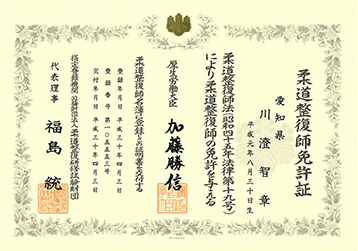 柔道整復師免許証
愛知県
川澄智章
平成元年八月三十日生
柔道整復師法(昭和四十五年法律第十九号)
により柔道整復師の免許を与える
厚生労働大臣 加藤勝信
柔道整復師名簿に登録しこの証明書を交付する
登録年月日 平成三十年四月三日
登録番号 第一〇五五五三号
交付年月日 平成三十年四月三日
指定登録機関 公益財団法人柔道整復研修試験財団
代表理事 福島統